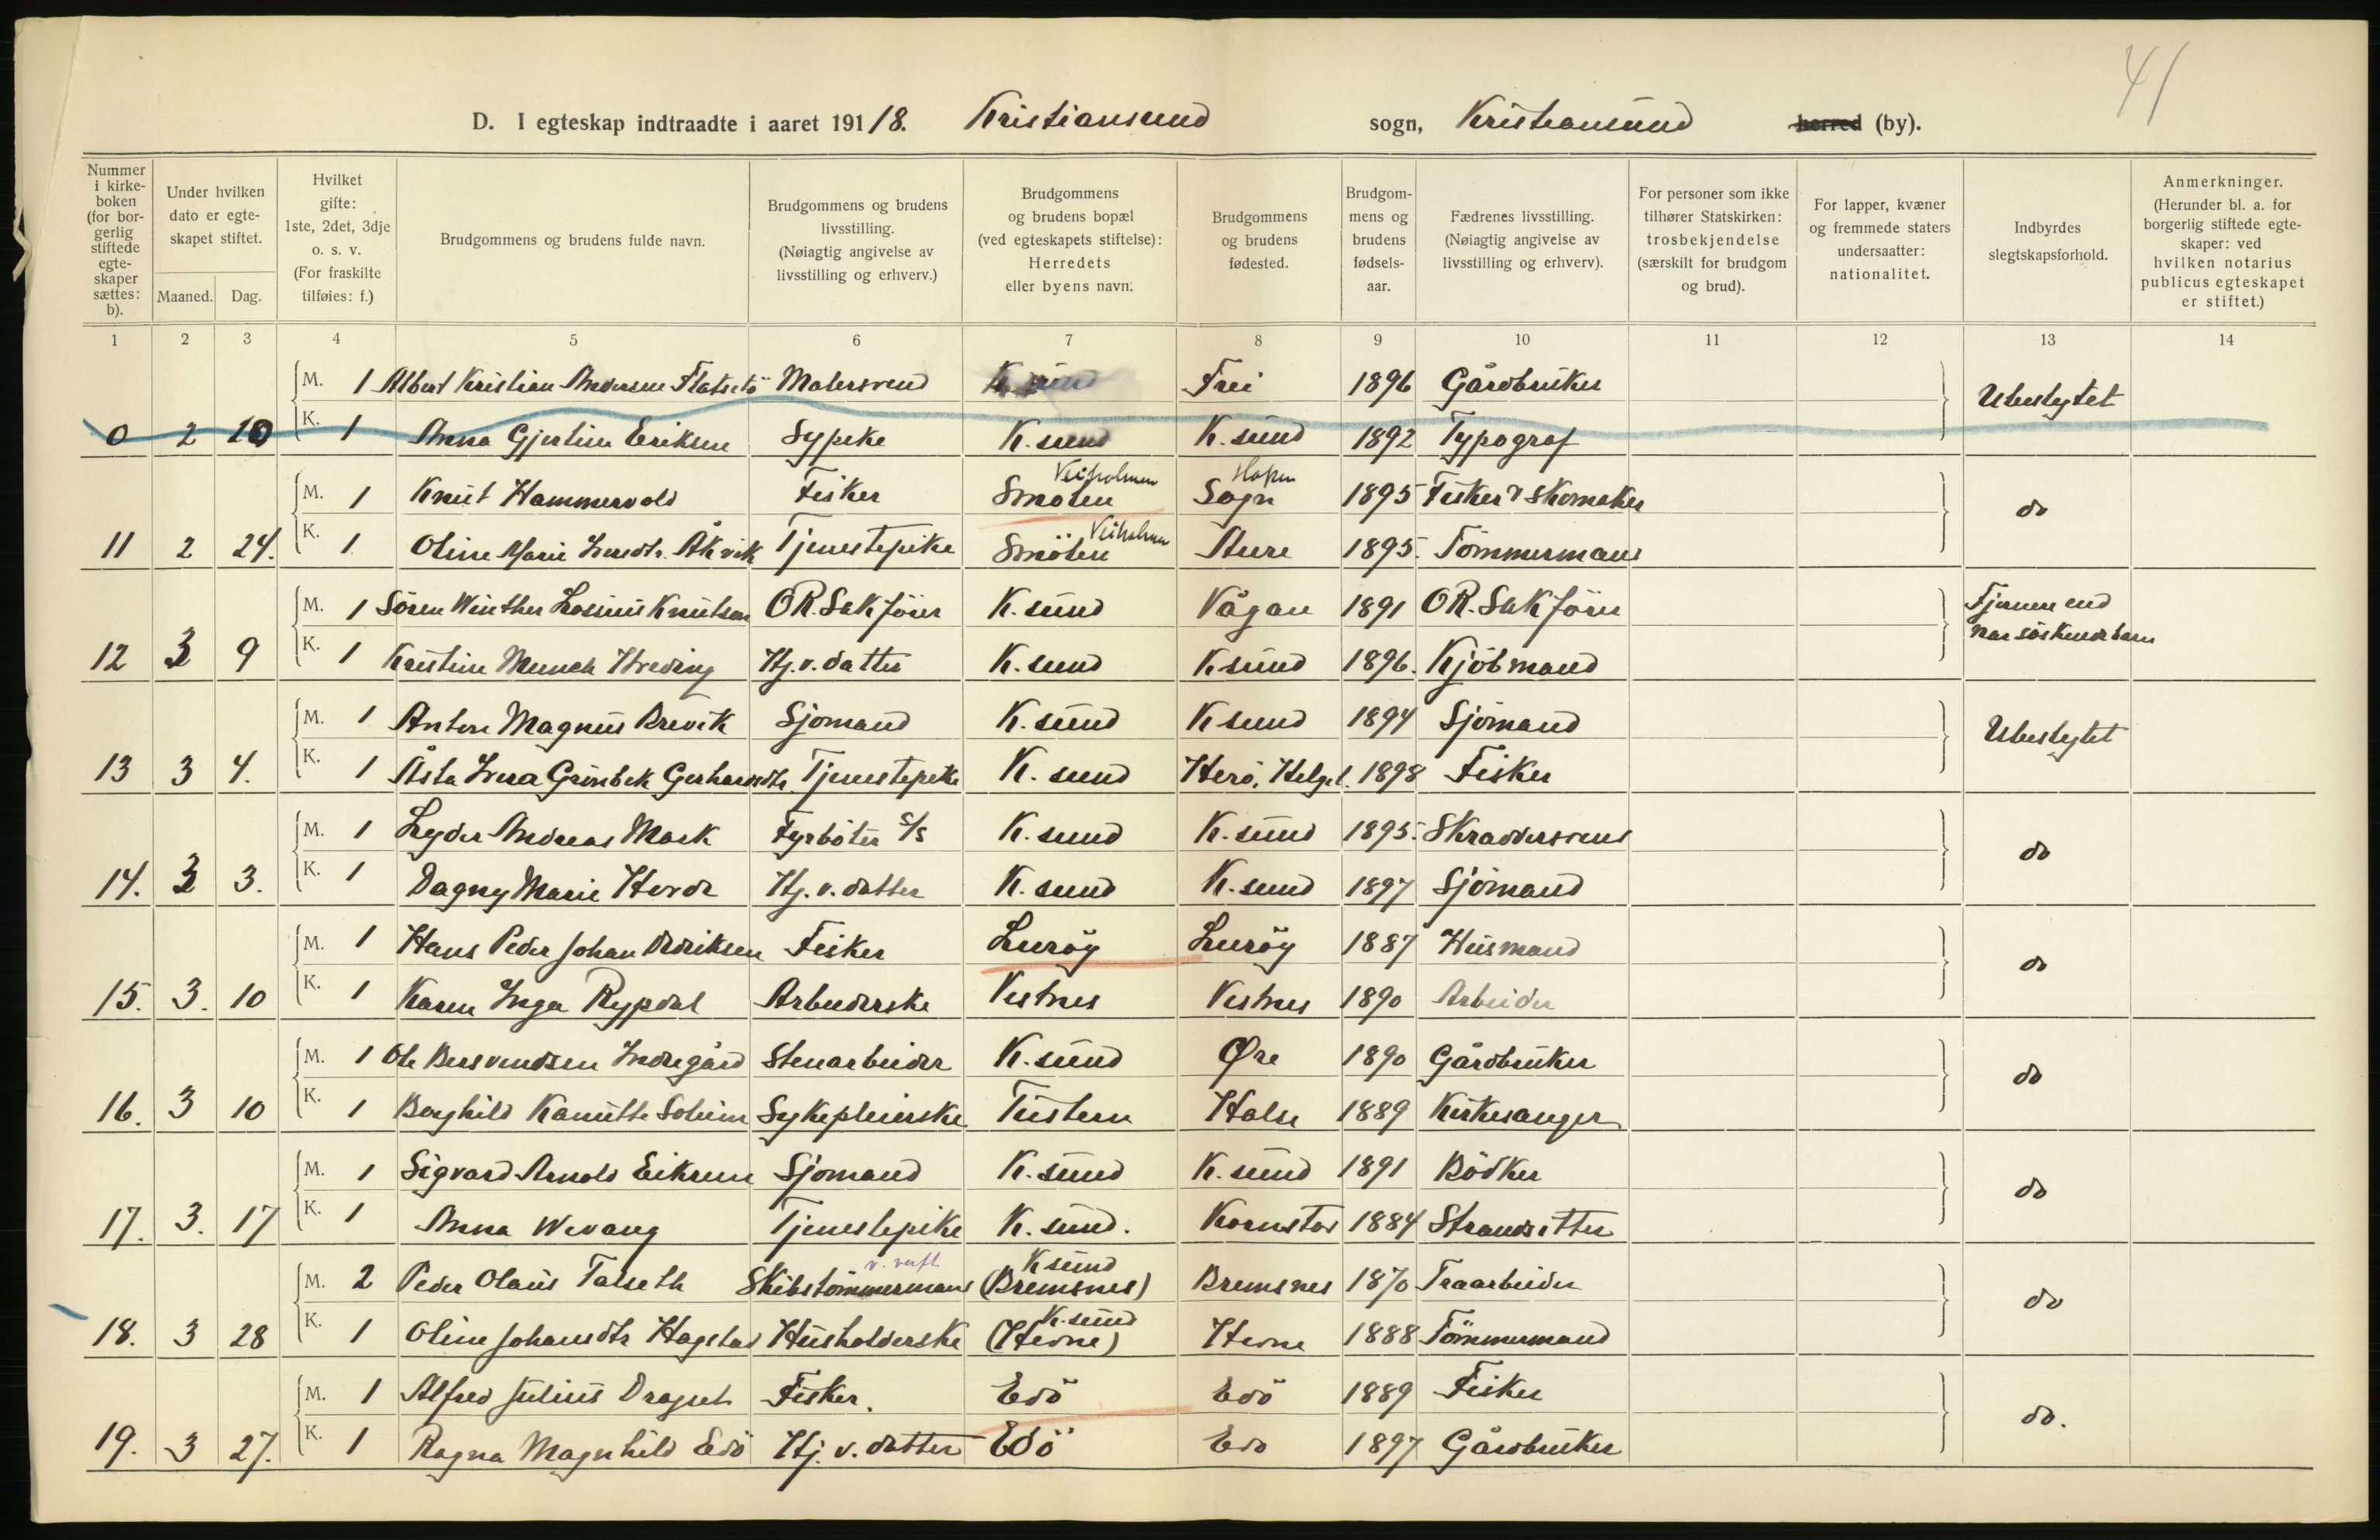 41
D. I egteskap indtraadte i aaret 19118. Kristiansund sogn, Kristiansund herred (by).
Nummer i kirkeboken (for borgerlig stiftede egteskaper sættes: b).
Under hvilken dato er egteskapet stiftet.
Maaned. Dag.
Hvilket gifte: 1ste, 2det, 3dje o. s. v. (For fraskilte tilføies: f.)
Brudgommens og brudens fulde navn.
Brudgommens og brudens livsstilling. (Nøiagtig angivelse av livsstilling og erhverv.)
Brudgommens og brudens bopæl (ved egteskapets stiftelse): Herredets eller byens navn.
Brudgommens og brudens fødested.
Brudgommens og brudens fødselsaar.
Fædrenes livsstilling. (Nøiagtig angivelse av livsstilling og erhverv).
For personer som ikke tilhører Statskirken: trosbekjendelse (særskilt for brudgom og brud).
For lapper, kvæner og fremmede staters undersaatter: nationalitet.
Indbyrdes slegtskapsforhold.
Anmerkninger. (Herunder bl. a. for borgerlig stiftede egteskaper: ved hvilken notarius publicus egteskapet er stiftet.)
1 2 3 4 5 6 7 8 9 10 11 12 13 14
M. 1 Albert Kristian Andersen Flatsetö Malersvend K.sund Frei 1896 Gårdbruker Ubeslegtet
0 2 10 K. 1 Anna Gjertine Eriksen Sypike K.sund K.sund 1892 Typograf
M. 1 Knut Hammervold Fisker Smölen Veiholmen Sogn Hopen 1895 Fisker & Skomaker do
11 2 24. K. 1 Oline Marie Åkvik Tjenestepike Smölen Veiholmen Aure 1895. Tömmermand
M. 1 Sören Winther Knutson OR.Sakförer K.sund Vågan 1891 OR.Sakförer Fjernere end næssöskendebarn
12 3 9 K. 1 Kristine Munch Hj.v.datter K.sund K sund 1896. Kjöbmand
M. 1 Anton Magnus Brevik Sjömand K.sund K sund 1894 Sjömand Ubeslegtet
13 3 4. K. 1 Åsta Grönbek Gerhardsdtr. Tjenestepike K.sund Herö, Helgel. 1898 Fisker
M. 1 Lyder Andreas Mork Fyrböter S/S K.sund K.sund 1895. Skraddersvend do
14. 3 3. K. 1 Dagny Marie Hj.v.datter K.sund K.sund 1897 Sjömand
M. 1 Hans Peder Johan Didriksen Fisker Luröy Luröy 1887 Husmand do
15. 3. 10 K. 1 Karen Inga Rypdal Arbeiderske Vestnes Vestnes 1890 Arbeider
M. 1 Ole Bersvendsen Indregård Stenarbeider K.sund Øre 1890 Gårdbruker do
16. 3 10 K. 1 Borghild Kamitte Solum Sykepleierske Tustern Halse 1889 Kirkesanger
M. 1 Sigvard Arnold Eikrem Sjömand K.sund K.sund 1891 Bödker do
17. 3. 17 K. 1 Anna Wevang Tjenestepike K.sund. Kornstad 1884 Strandsitter
M. 2 Peder Olaus Talseth Skibstömmermand v. verft K sund (Bremsnes) Bremsnes 1870 Træarbeider do
18. 3 28 K. 1 Oline Johansdtr Hagstad Husholderske K.sund (Hevne) Hevne 1888 Tömmermand
M. 1 Alfred Julius Draget Fisker. Edö Edö 1889 Fisker do.
19. 3 27. K. 1 Ragna Magnhild Edö Hj.v.datter Edö Edö 1897 Gårdbruker